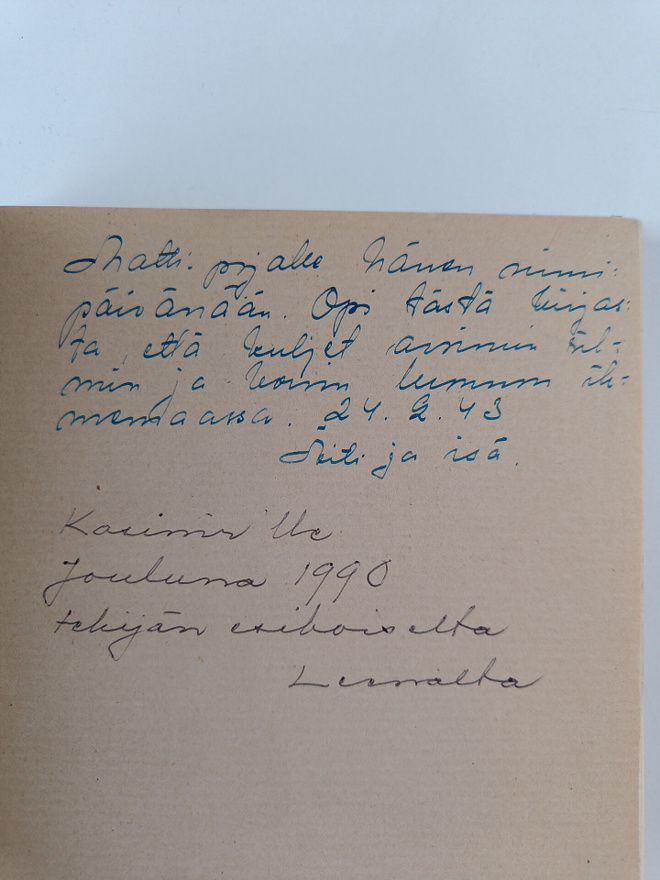 Matti-pojalle hänen nimi-
päivänään. Opi tästä kirjas-
ta, että kuljet avoimin sil-
min ja korvin luonnon ih-
memaassa. 24.2.43
Äiti ja isä.
Kasimir'lle
Jouluna 1990
tekijän esikoiselta
Leenalta